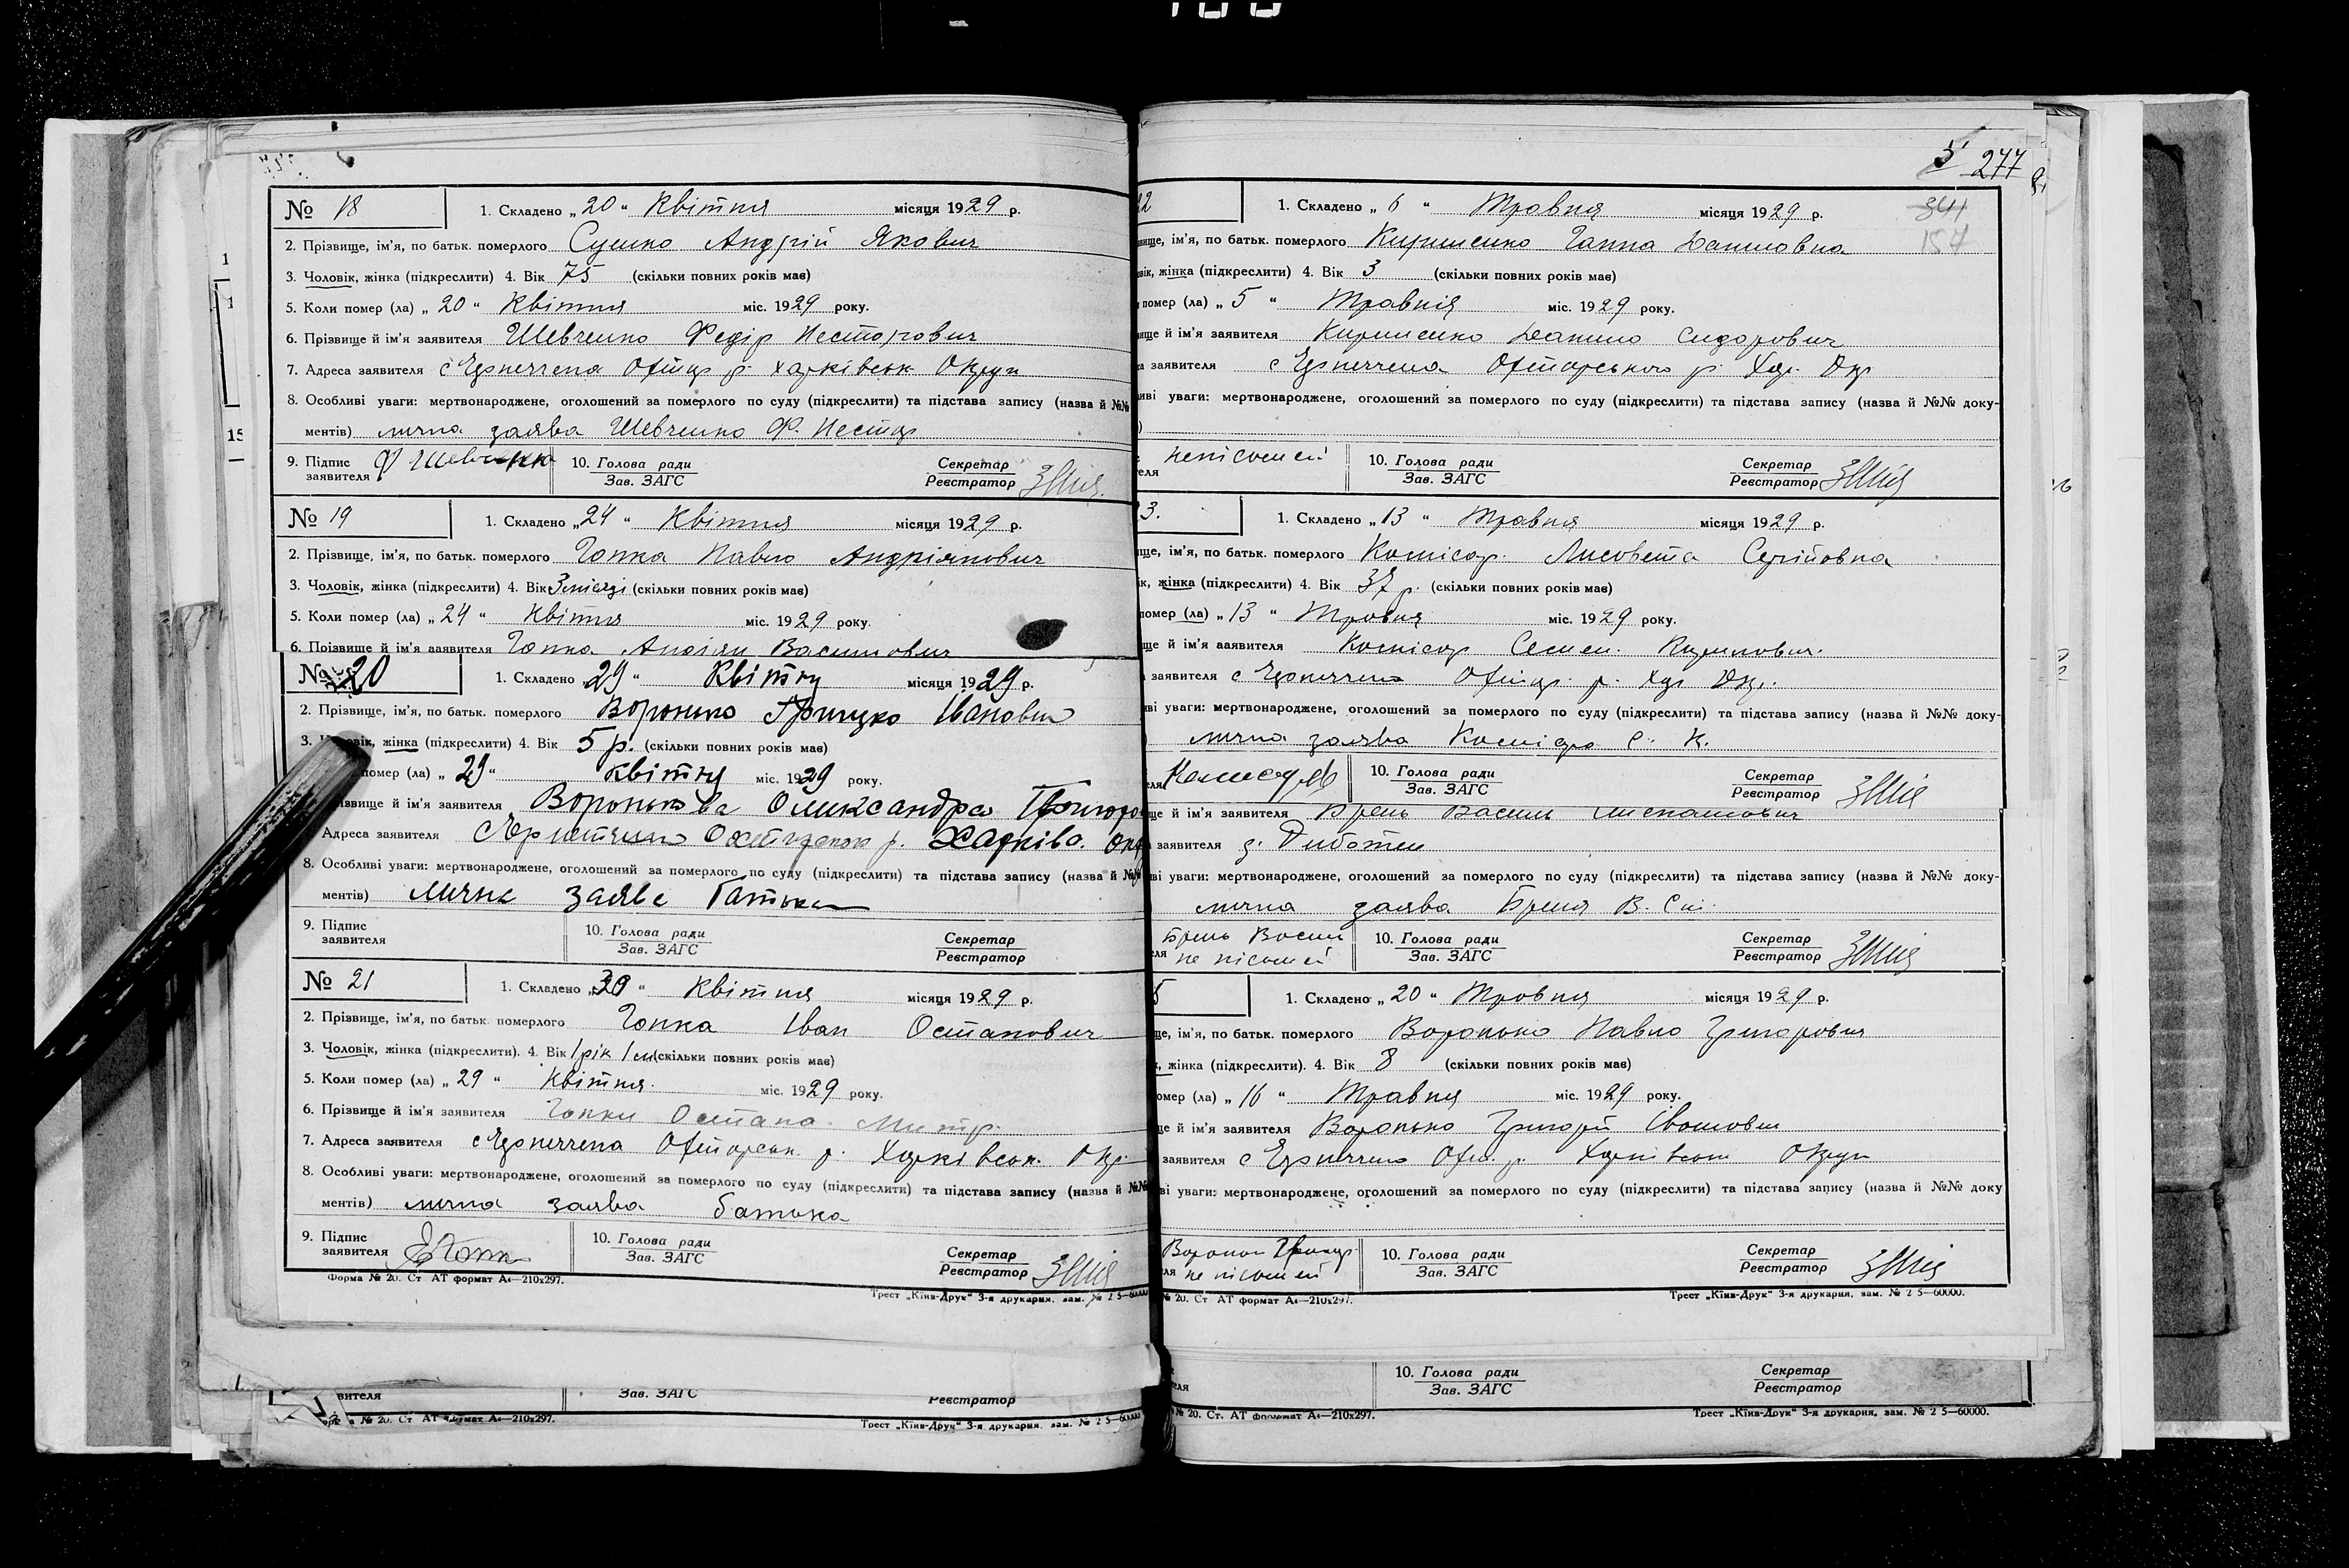 № 18
1. Складено „20“ Квітня місяця 1929 р.
2. Прізвище, ім'я, по батьк. померлого Сушко Андрій Якович
3. Чоловік, жінка (підкреслити) 4. Вік 75 (скільки повних років має)
5. Коли помер (ла) „20“ Квітня міс. 1929 року.
6. Прізвище й ім'я заявителя Шевченко Федір Несторович
7. Адреса заявителя с Харківськ Округи
8. Особливі уваги: мертвонароджене, оголошений за померлого по суду (підкреслити) та підстава запису (назва й №№
ментів) лична заява Шевченко Ф. Нестор
9. Підпис заявителя Ф Шевченко
10. Голова ради
Зав. ЗАГС
Секретар
Реєстратор
№ 19
1. Складено „24“ Квітня місяця 1929 р.
2. Прізвище, ім'я, по батьк. померлого Гопка Павло Андріянович
3. Чоловік, жінка (підкреслити) 4. Вік 3 місяці (скільки повних років має)
5. Коли помер (ла) „24“ Квітня міс. 1929 року.
6. Прізвище й ім'я заявителя Гопка Андріян Васильович
№ 20
1. Складено „29“ Квітня місяця 1929 р.
2. Прізвище, ім'я, по батьк. померлого Воронько Грицько Іванович
3. жінка (підкреслити) 4. Вік 5 р. (скільки повних років має)
помер (ла) „29“ квітня міс. 1929 року.
ізвище й ім'я заявителя Олександра
Адреса заявителя р. Харків.
8. Особливі уваги: мертвонароджене, оголошений за померлого по суду (підкреслити) та підстава запису (назва й №№
ментів) лична заява батька
9. Підпис
заявителя
10. Голова ради
Зав. ЗАГС
Секретар
Реєстратор
№ 21
1. Складено „30“ Квітня місяця 1929 р.
2. Прізвище, ім'я, по батьк. померлого Гопка Іван Остапович
3. Чоловік, жінка (підкреслити). 4. Вік 1 рік 1 м (скільки повних років має)
5. Коли помер (ла) „29“ Квітня міс. 1929 року.
6. Прізвище й ім'я заявителя Гопки Остапа Митр.
7. Адреса заявителя с р. Харківськ. Окр.
8. Особливі уваги: мертвонароджене, оголошений за померлого по суду (підкреслити) та підстава запису (назва й №№
ментів) лична заява батька
9. Підпис
заявителя
10. Голова ради
Зав. ЗАГС
Секретар
Реєстратор
Форма № 20. Ст АТ формат А4—210х297.
Трест „Київ-Друк“ 3-я друкарня, зам. № 2 5—60000
вителя
Зав. ЗАГС
Реєстратор
№ 20. Ст АТ формат А4—210х297.
Трест „Київ-Друк“ 3-я друкарня, зам. № 2 5—60000
5 277
341
157
2
1. Складено „6“ Травня місяця 1929 р.
вище, ім'я, по батьк. померлого Кириченко Ганна Даниловна
вік, жінка (підкреслити) 4. Вік 3 (скільки повних років має)
помер (ла) „5“ Травня міс. 1929 року.
вище й ім'я заявителя Кириченко Данило Сидорович
заявителя с р. Хар. Окр
иві уваги: мертвонароджене, оголошений за померлого по суду (підкреслити) та підстава запису (назва й №№ доку-
)
неписьмен
10. Голова ради
Зав. ЗАГС
Секретар
Реєстратор
3.
1. Складено „13“ Травня місяця 1929 р.
ще, ім'я, по батьк. померлого Комісар Лисовета Сергійовна
ік, жінка (підкреслити) 4. Вік 37 р. (скільки повних років має)
помер (ла) „13“ Травня міс. 1929 року.
ще й ім'я заявителя Комісар Семен Кирилович
заявителя с р. Хар Окр.
ві уваги: мертвонароджене, оголошений за померлого по суду (підкреслити) та підстава запису (назва й №№ доку-
лична заява Комісара С. К.
10. Голова ради
Зав. ЗАГС
Секретар
Реєстратор
ще й ім'я заявителя Брень Василь
заявителя
ві уваги: мертвонароджене, оголошений за померлого по суду (підкреслити) та підстава запису (назва й №№ доку-
лична заява Бреня В. Ст.
Брень Васил
не пісьмен
10. Голова ради
Зав. ЗАГС
Секретар
Реєстратор
5
1. Складено „20“ Травня місяця 1929 р.
ще, ім'я, по батьк. померлого Воронько Павло Григорович
жінка (підкреслити). 4. Вік 8 (скільки повних років має)
омер (ла) „16“ Травня міс. 1929 року.
ще й ім'я заявителя Воронько Григорій Іванович
заявителя с р. Харківськ Округи
ві уваги: мертвонароджене, оголошений за померлого по суду (підкреслити) та підстава запису (назва й №№ доку
не пісьмен
10. Голова ради
Зав. ЗАГС
Секретар
Реєстратор
№ 20. Ст АТ формат А4—210х297.
Трест „Київ-Друк“ 3-я друкарня, зам. № 2 5—60000.
10. Голова ради
Зав. ЗАГС
Секретар
Реєстратор
№ 20. Ст. АТ формат А4—210х297.
Трест „Київ-Друк“ 3-я друкарня, зам. № 2 5—60000.